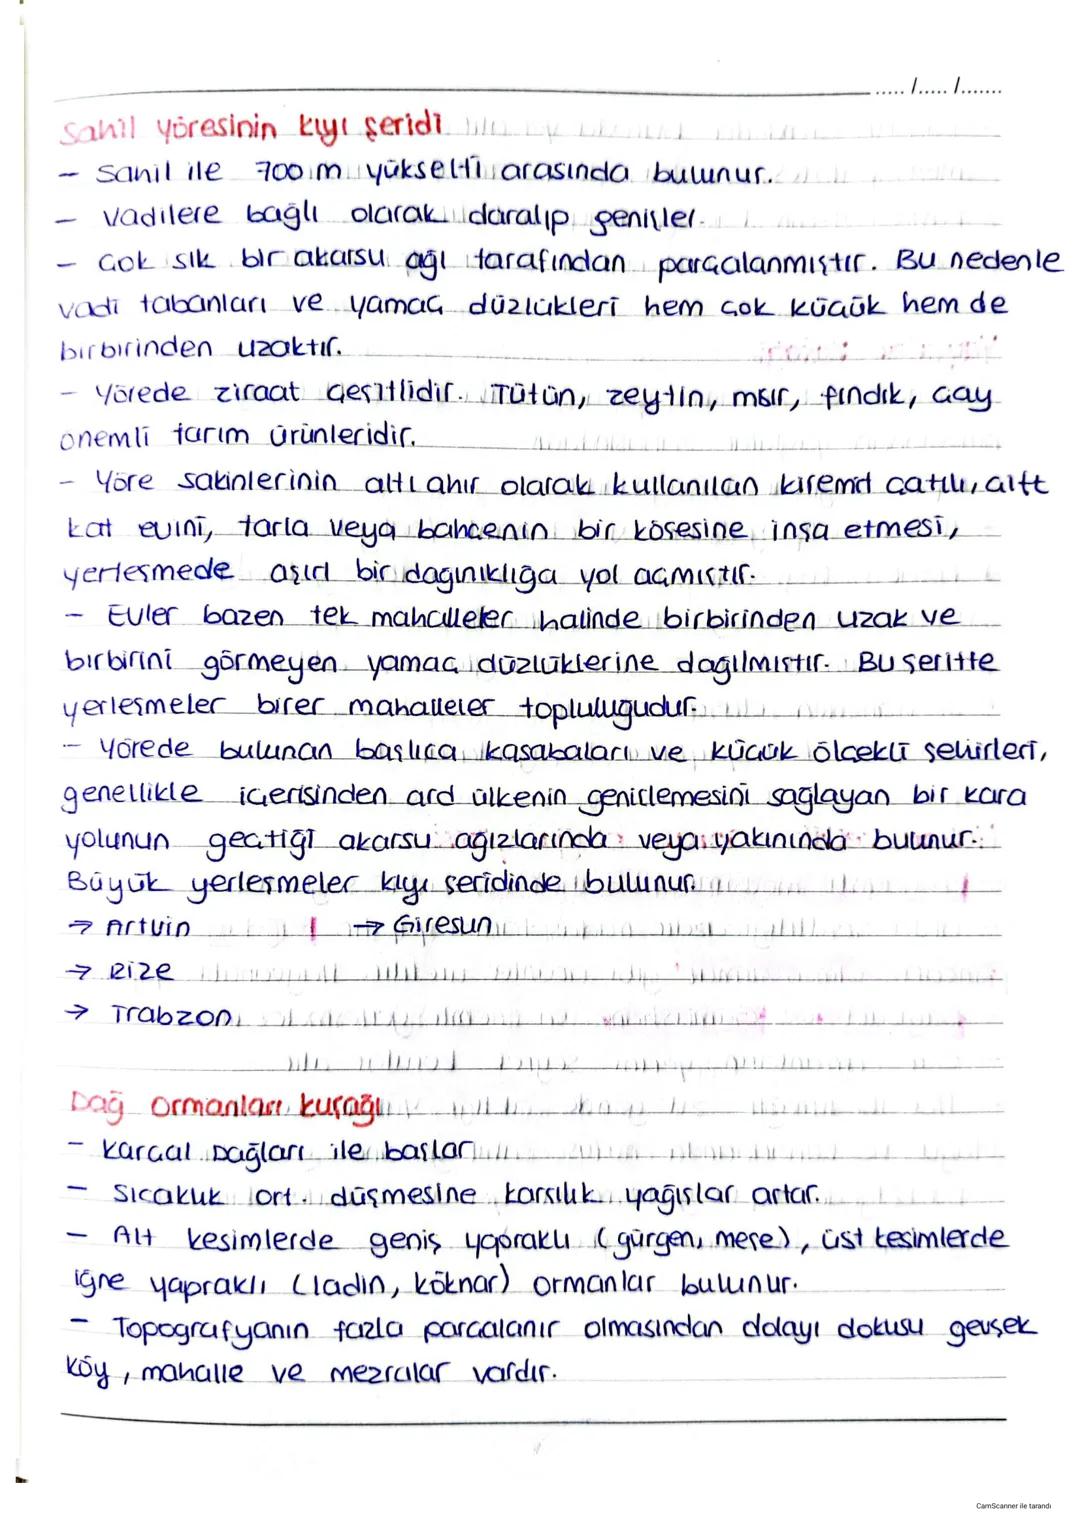 ...../...../.......
Sahil yöresinin kıyı şeridi
- Sahil ile 700 m yükselti arasında bulunur.
- Vadilere bağlı olarak daralıp genişler.
- Çok sık bir akarsu ağı tarafından parçalanmıştır. Bu nedenle
vadi tabanları ve yamaç düzlükleri hem çok küçük hem de
birbirinden uzaktır.
- Yörede ziraat çeşitlidir. Tütün, zeytin, mısır, fındık, çay
önemli tarım ürünleridir.
- Yöre sakinlerinin altı ahır olarak kullanılan kiremit çatılı, çift
kat evini, tarla veya bahçenin bir köşesine inşa etmesi,
yerleşmede aşırı bir dağınıklığa yol açmıştır.
- Evler bazen tek mahalleler halinde birbirinden uzak ve
birbirini görmeyen yamaç düzlüklerine dağılmıştır. Bu şeritte
yerleşmeler birer mahalleler topluluğudur.
- Yörede bulunan başlıca kasabaları ve küçük ölçekli şehirleri,
genellikle içerisinden ard ülkenin genişlemesini sağlayan bir kara
yolunun geçtiği akarsu ağızlarında veya yakınında bulunur.
Büyük yerleşmeler kıyı şeridinde bulunur.
→ Artvin → Giresun
→ Rize
→ Trabzon
Dağ ormanları kuşağı
- Karçal Dağları ile başlar
- Sıcaklık ort. düşmesine karşılık yağışlar artar.
- Alt kesimlerde geniş yapraklı (gürgen, meşe), üst kesimlerde
iğne yapraklı (ladin, köknar) ormanlar bulunur.
- Topografyanın fazla parçalanır olmasından dolayı dokusu gevşek
köy, mahalle ve mezralar vardır.
CamScanner ile tarandı